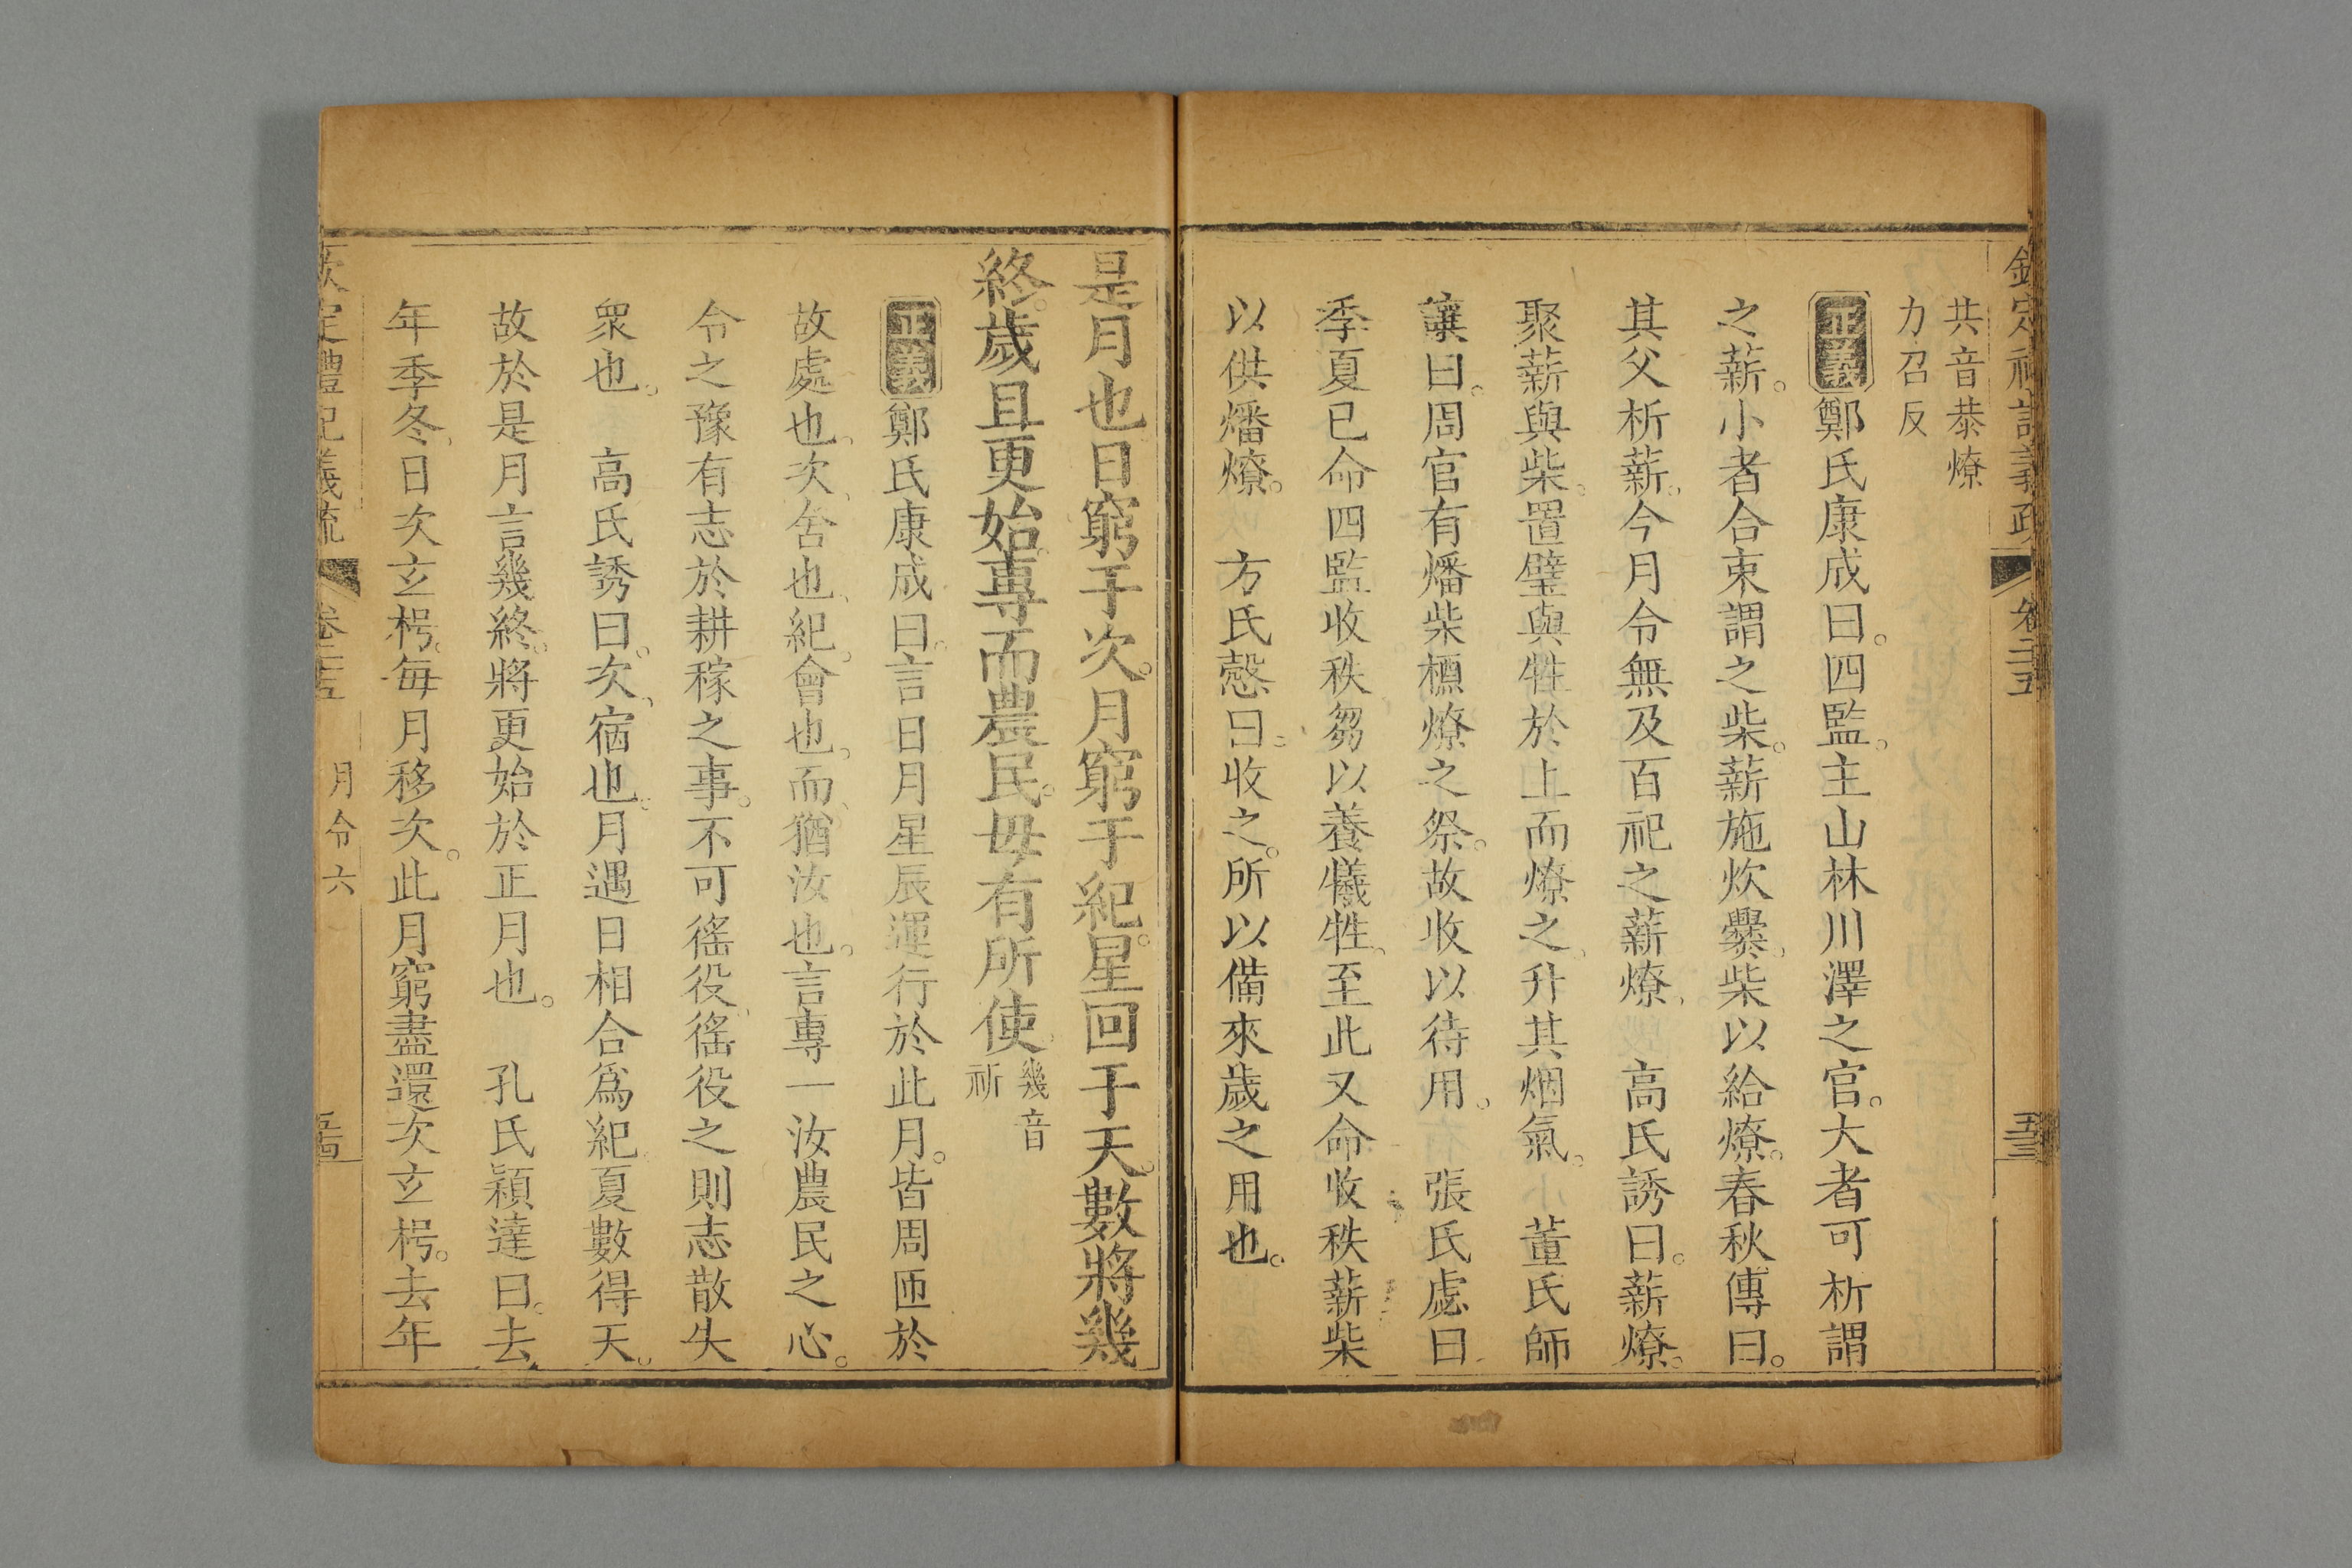 欽定禮記義疏 卷二十五 五三
共音恭燎
力召反
正義鄭氏康成曰。四監。主山林川澤之官。大者可析謂
之薪。小者合束謂之柴。薪施炊爨、柴以給燎。春秋傳曰。
其父析薪。今月令無及百祀之薪燎、 高氏誘曰。薪燎。
聚薪與柴。置璧與牲於上而燎之、升其烟氣。 董氏師
讓曰。周官有燔柴槱燎之祭。故收以待用。 張氏虙曰
季夏已命四監收秩芻以養犧牲、至此又命收秩薪柴
以供燔燎。 方氏慤曰。收之。所以備來歲之用也。
是月也日窮于次。月窮于紀。星回于天。數將幾
終。歲且更始。專而農民。毋有所使。幾音祈
正義鄭氏康成曰。言日月星辰運行於此月。皆周匝於
故處也、次、舍也、紀。會也、而、猶汝也。言專一汝農民之心。
令之豫有志於耕稼之事。不可徭役、徭役之則志散失
衆也。 高氏誘曰。次、宿也。月遇日相合爲紀。夏數得天。
故於是月言幾終。將更始於正月也。 孔氏穎達曰。去
年季冬、日次玄枵。每月移次。此月窮盡還次玄枵。去年
欽定禮記義疏 卷二十五 月令六 五四